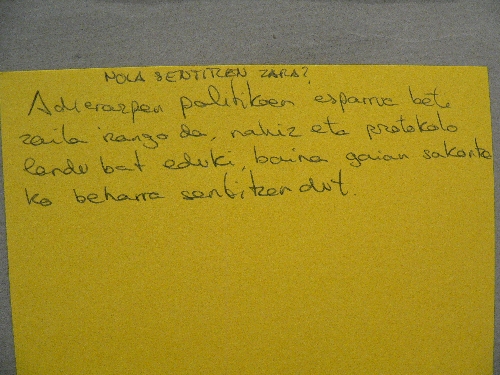 NOLA SENTITZEN ZARA?
Adierazpen politikoen esparrua bete
zaila izango da, nahiz eta protokolo
landu bat eduki, baina gaian sakontze
ko beharra sentitzen dut.